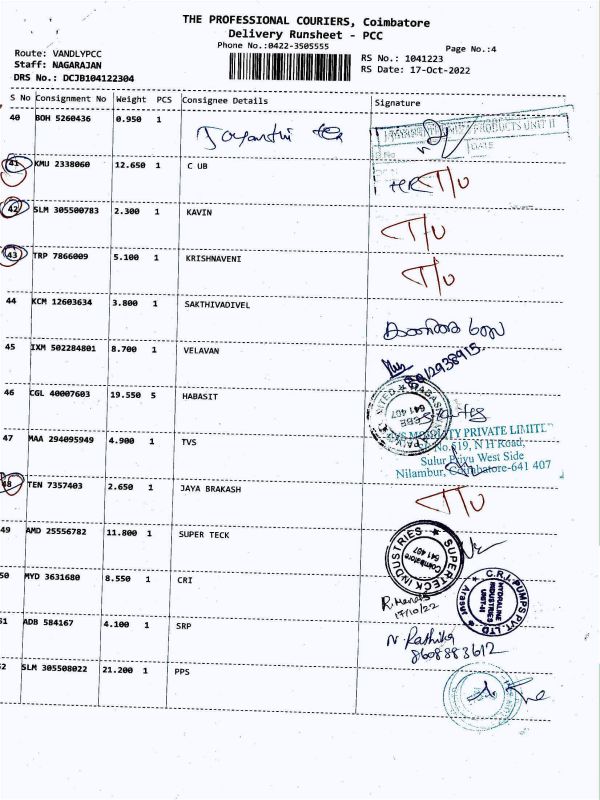 THE PROFESSIONAL COURIERS, Coimbatore
Delivery Runsheet - PCC
Phone No.:0422-3505555
Page No.:4
Route: VANDLYPCC
Staff: NAGARAJAN
DRS No.: DCJB104122304
RS No.: 1041223
RS Date: 17-Oct-2022
S No Consignment No Weight PCS Consignee Details Signature
40 BOH 5260436 0.950 1
PRODUCTS UNIT II
DATE
41 KMU 2338060 12.650 1 C UB T/U
42 SLM 305500783 2.300 1 KAVIN T/U
43 TRP 7866009 5.100 1 KRISHNAVENI T/U
44 KCM 12603634 3.800 1 SAKTHIVADIVEL
45 IXM 502284801 8.700 1 VELAVAN
46 CGL 40007603 19.550 5 HABASIT
641 407
47 MAA 294095949 4.900 1 TVS
PRIVATE LIMITE
No.519, N H Road,
Sulur Privu West Side
Nilambur, Coimbatore-641 407
48 TEN 7357403 2.650 1 JAYA BRAKASH T/U
49 AMD 25556782 11.800 1 SUPER TECK
SUPERTECK INDUSTRIES
Coimbatore
641 407
50 MYD 3631680 8.550 1 CRI
17/10/22
C.R.I. PUMPS PVT. LTD
HYDRALINE
INDUSTRIES
UNIT-III
Arasur
51 ADB 584167 4.100 1 SRP
N. Rathika
8608883612
52 SLM 305508022 21.200 1 PPS